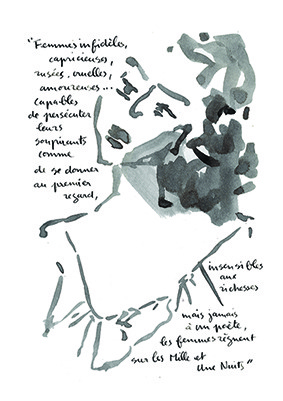 "Femmes infidèles,
capricieuses,
rusées, cruelles,
amoureuses...
capables
de persécuter
leurs
soupirants
comme
de se donner
au premier
regard,
insensibles
aux
richesses
mais jamais
à un poète,
les femmes règnent
sur les Mille et
Une Nuits"